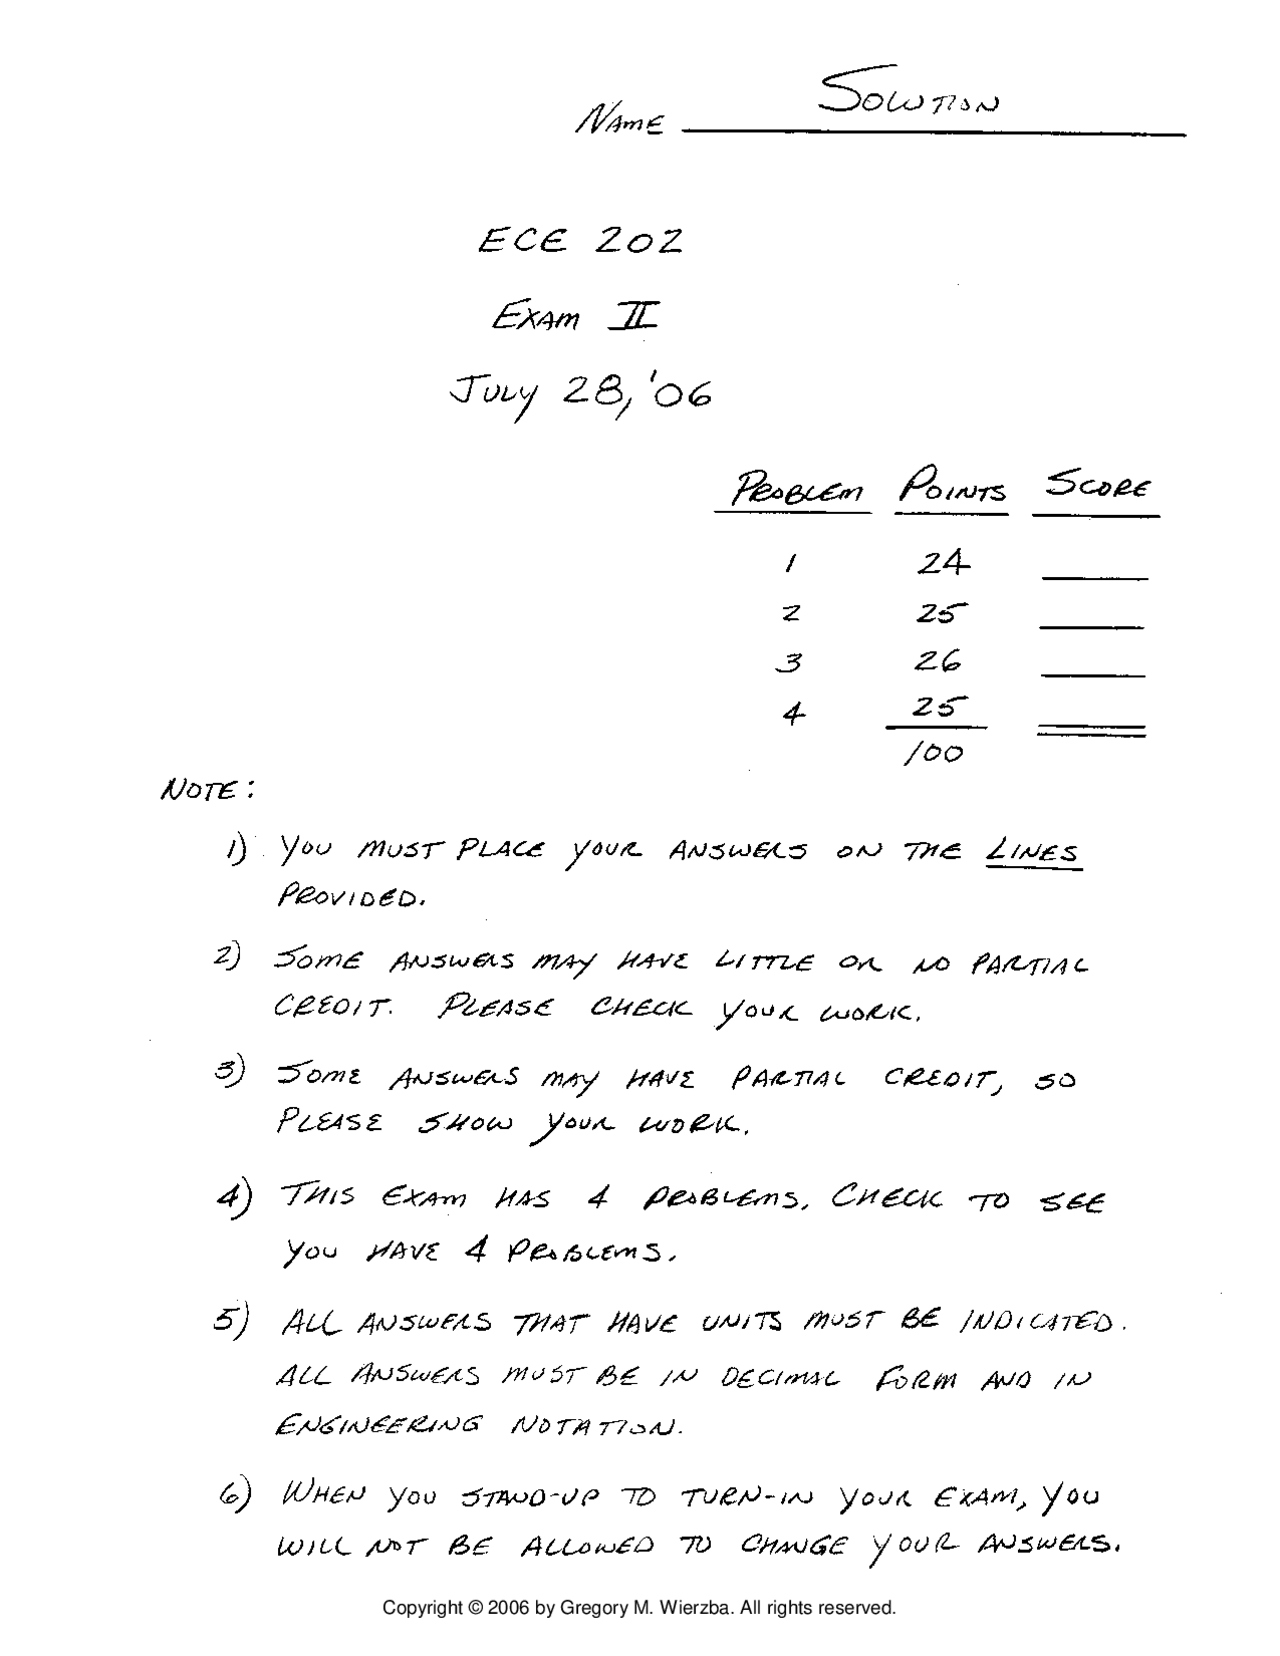 NAME SOLUTION
ECE 202
EXAM II
JULY 28, '06
PROBLEM POINTS SCORE
1 24
2 25
3 26
4 25
100
NOTE:
1) YOU MUST PLACE YOUR ANSWERS ON THE LINES
PROVIDED.
2) SOME ANSWERS MAY HAVE LITTLE OR NO PARTIAL
CREDIT. PLEASE CHECK YOUR WORK.
3) SOME ANSWERS MAY HAVE PARTIAL CREDIT, SO
PLEASE SHOW YOUR WORK.
4) THIS EXAM HAS 4 PROBLEMS. CHECK TO SEE
YOU HAVE 4 PROBLEMS.
5) ALL ANSWERS THAT HAVE UNITS MUST BE INDICATED.
ALL ANSWERS MUST BE IN DECIMAL FORM AND IN
ENGINEERING NOTATION.
6) WHEN YOU STAND-UP TO TURN-IN YOUR EXAM, YOU
WILL NOT BE ALLOWED TO CHANGE YOUR ANSWERS.
Copyright © 2006 by Gregory M. Wierzba. All rights reserved.